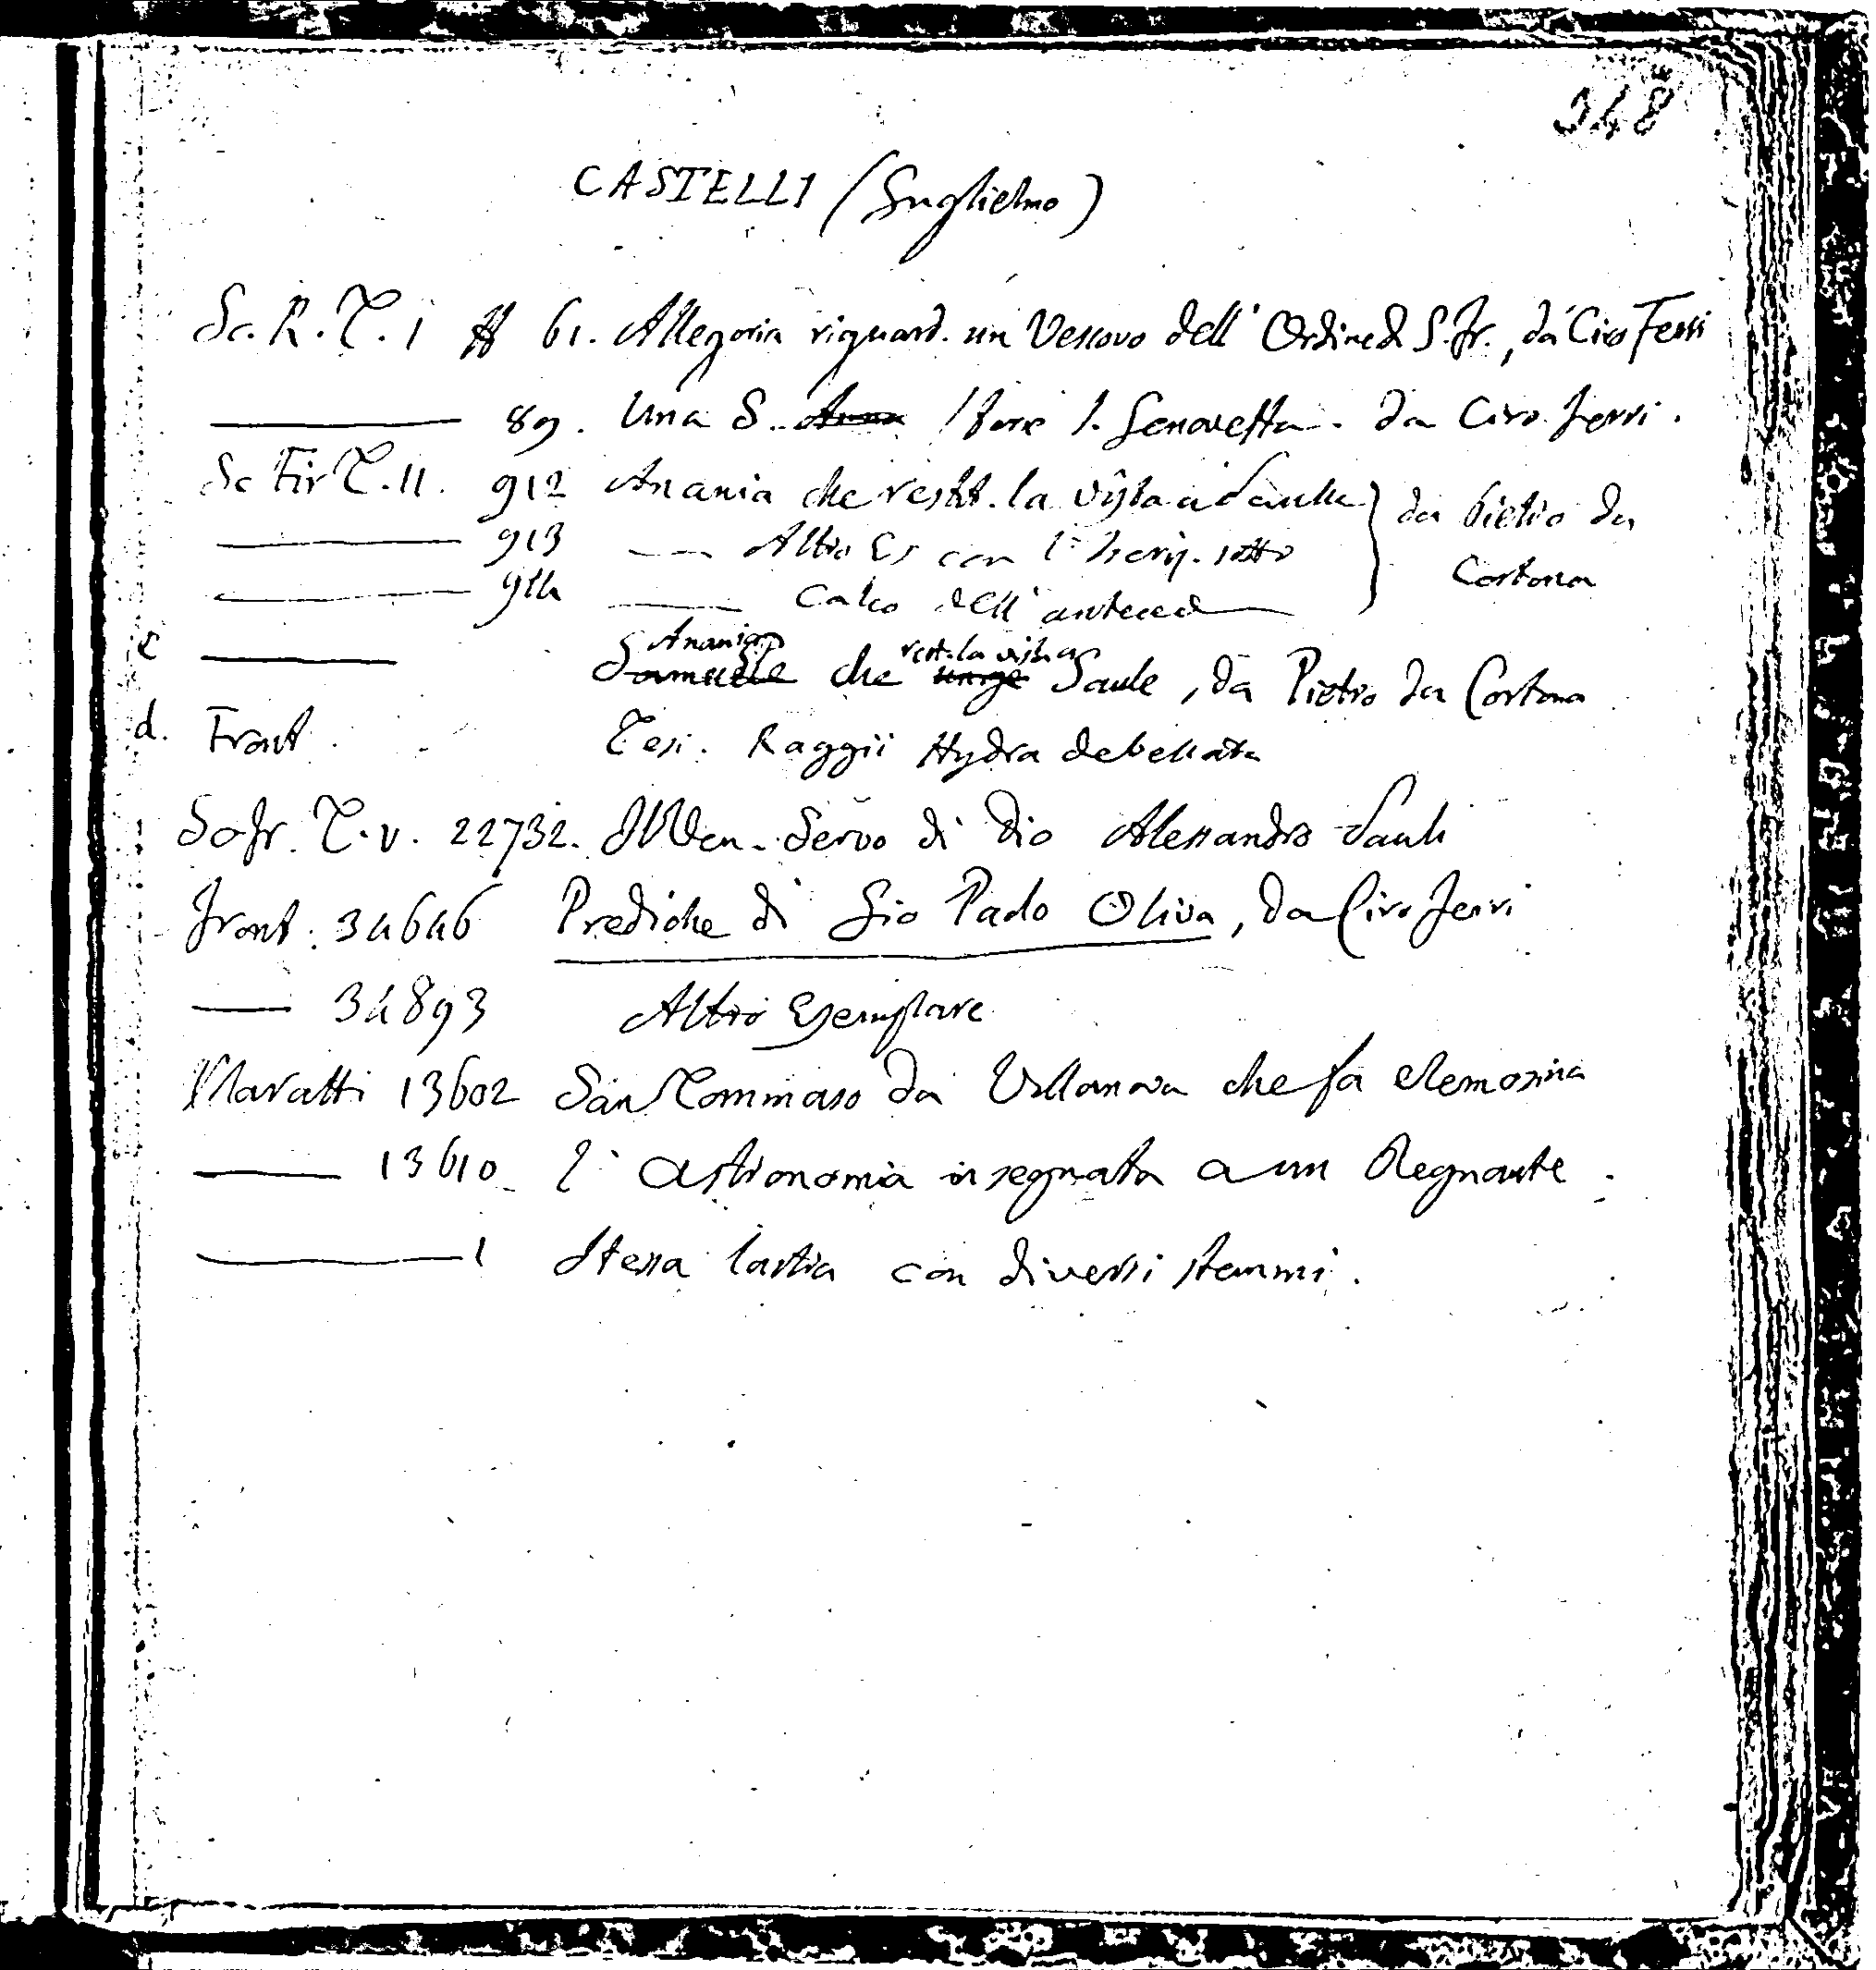 348
CASTELLI (Guglielmo)
Sc. R. T. I 61. Allegoria riguard. un Vescovo dell' Ordine di S. Fr., da Ciro Ferri
89. Una S. Anna forse S. Genoveffa. da Ciro Ferri.
Sc Fir T. II. 912 Anania che restit. la vista a Saulle da Pietro da
913 Altro Es con l' Iscriz. sotto
Cortona
914 Calco dell' anteced
c Samuele Anania che unge rest. la vista a Saule, da Pietro da Cortona
d. Front. Tesi. Raggii Hydra debellata
So fr. T. V. 22732. Il Ven. Servo di Dio Alessandro Sauli
Front. 34646 Prediche di Gio Paolo Oliva, da Ciro Ferri
34893 Altro Esemplare
Maratti 13602 San Tommaso da Villanova che fa elemosina
13610 l' astronomia insegnata a un Regnante.
1 Stessa lastra con diversi stemmi.